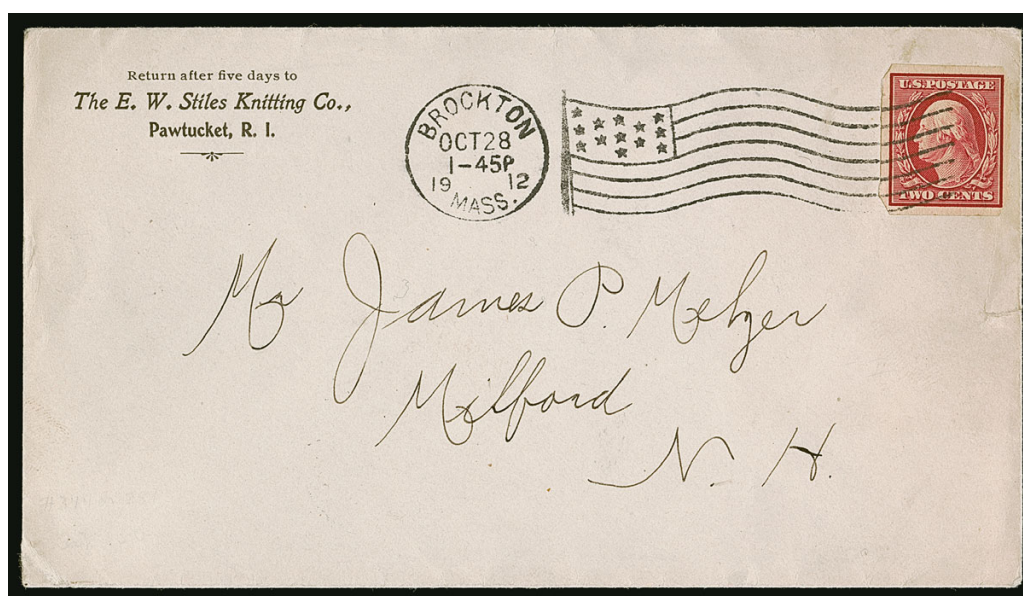 Return after five days to
The E. W. Stiles Knitting Co.,
Pawtucket, R. I.
BROCKTON
OCT 28
1-45P
19 12
MASS.
U.S. POSTAGE
TWO CENTS
Mr James P. Melzer
Milford
N. H.